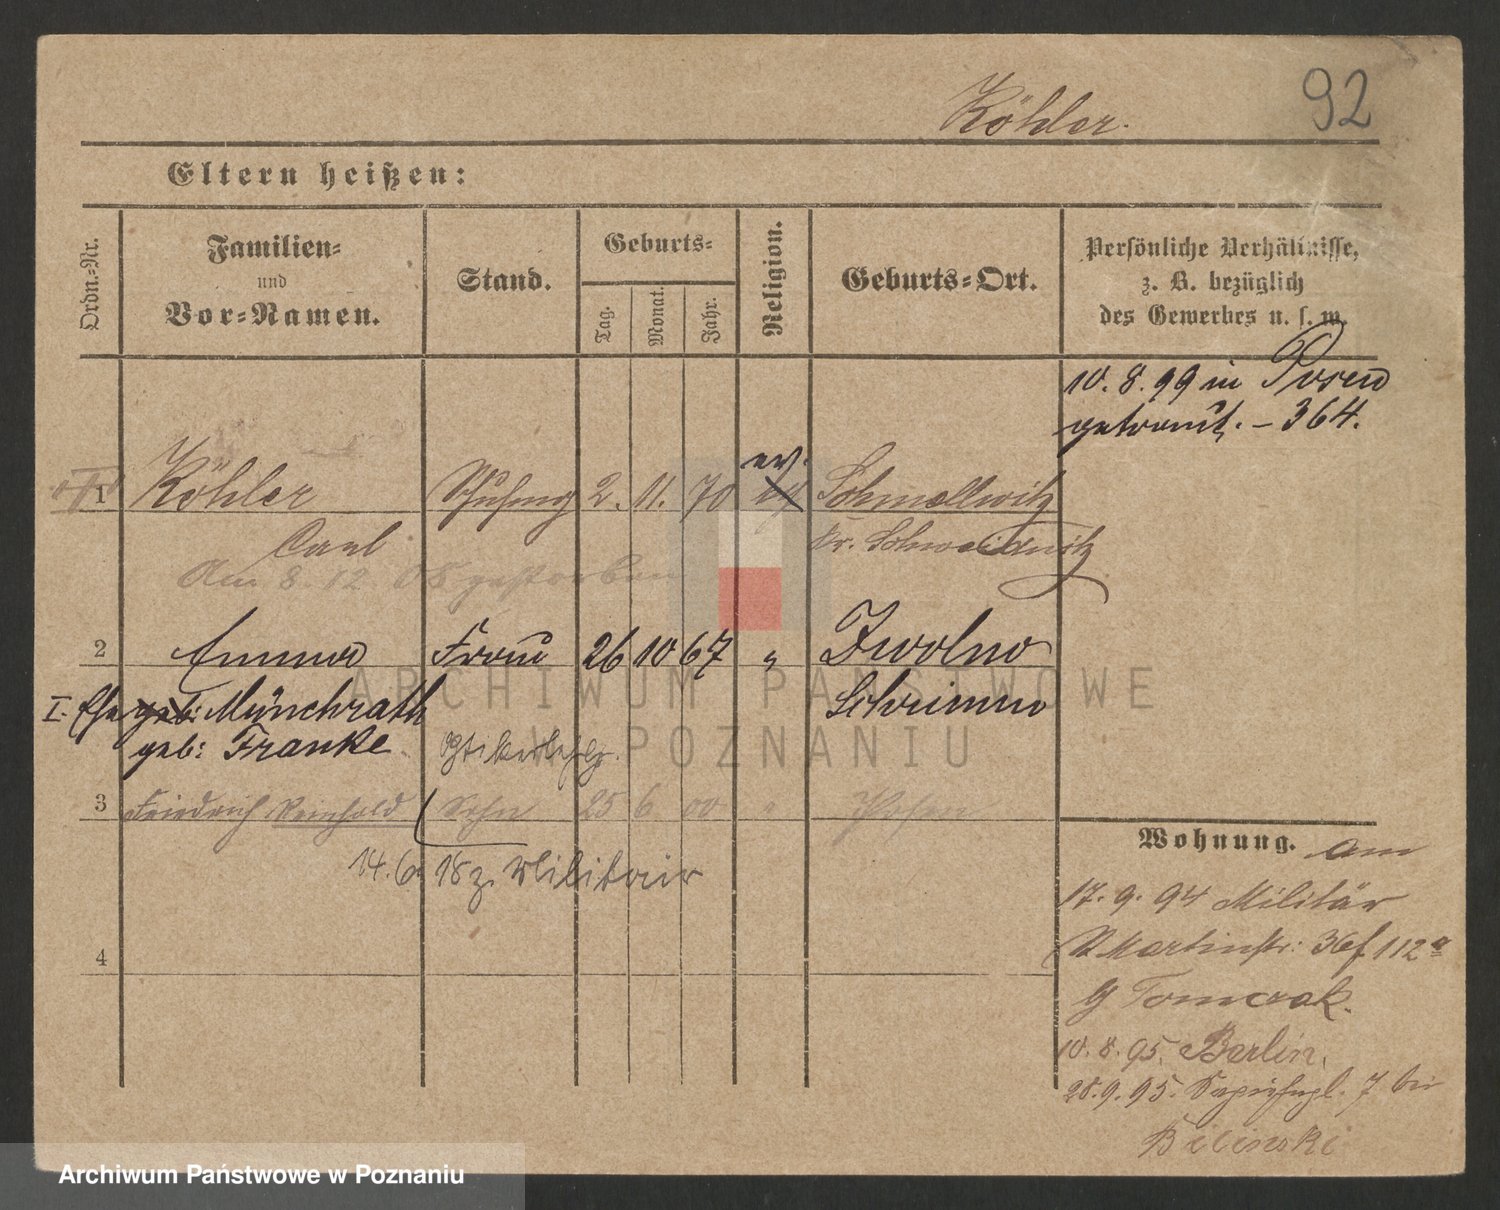 92
Köhler.
Eltern heißen:
Ordn.-Nr.
Familien-
und
Vor-Namen.
Stand.
Geburts-
Tag.
Monat.
Jahr.
Religion.
Geburts-Ort.
Persönliche Verhältnisse,
z. B. bezüglich
des Gewerbes u. s. w.
10. 8. 99 in Posen
getraut. – 364.
ev.
1 Köhler 2. 11. 70 Schmellwitz
Carl Kr. Schweidnitz
Am 8. 12. 08 gestorben
2 Emma Frau 26 10 67 " Zwolno
I. Ehe geb: Münchrath Schrimm
geb: Franke
3 Friedrich Reinhold Sohn 25 6 00 " Posen
14. 6. 18 z. Militair
4
Wohnung. am
17. 9. 94 Militär
Martinstr: 36 f. 112
Tomczak.
10. 8. 95. Berlin.
28. 9. 95. 7 bei
Bilinski
ARCHIWUM PAŃSTWOWE
W POZNANIU
Archiwum Państwowe w Poznaniu